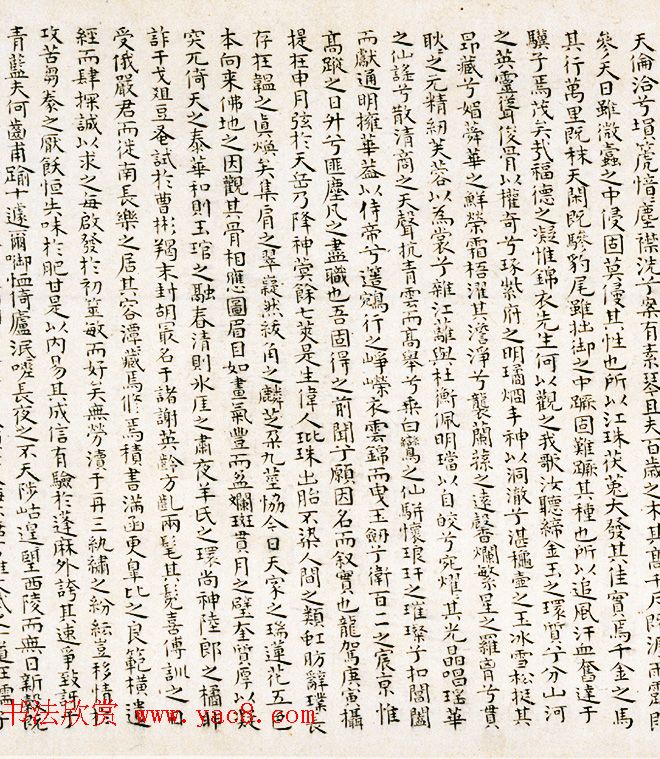 天倫洽兮塤篪愔塵襟洗兮案有素琴且夫百歲之木其高千尺陰液雨
參天日雖微蠹之中侵固莫侵其性也所以江珠茯菟大發其佳實焉千金之馬
其行萬里既秣天閑既驂豹尾雖拙御之中蹶固難蹶其種也所以追風汗血奮達于
驥子焉茂矣哉福德之凝惟錦衣先生何以觀之我歌汝聽締金玉之環質兮分山河
之英靈聳俊骨以權奇兮琢紫府之明璚烟丰神以洞澈兮湛櫑壺之玉冰雪松挺其
昂藏兮媚蕣華之鮮榮霜梧濯其澹淨兮襲蘭蓀之遠馨爛繁星之羅胷兮貫
耿之元精紉芙蓉以為裳兮雜江蘺與杜衡佩明璫以自皎兮宛燿其光晶唱瑤華
之仙謠兮散清商之天聲抗青雲而高舉兮乘白鸞之仙駢懷琅玕之璀璨兮扣閶闔
而獻通明擁華葢以侍帝兮邁鵷行之崢嶸衣雲錦而曳玉劒兮衛百二之宸京惟
高蹤之日升兮匪塵凡之盡職也吾固得之前聞兮願因名而叙實也龍駕庚寅攝
提在申月弦於天岳乃降神蓂餘七莢是生偉人玭珠出胎不染人間之類虹肪辭璞長
存在韞之真煥矣集肩之翠凝然紱角之麟芝朶九莖協今日天家之瑞蓮花五色
本向來佛地之因觀其骨相應圖眉目如畫氣豐而盆斕斑貫月之璧奎質厚以
突兀倚天之泰華和則玉琯之融春清則氷厓之肅夜羊氏之環尚神陸郎之橘
詐干戈俎豆蚤試於曹彬羯末封胡最名于諸謝英齡方齔兩髦其髧喜傳訓之
受俄嚴君而徙南長樂之居其容潭藏焉修焉積書滿函更臯比之良範橫遺
經而肆探誠以求之每啟發於初筮敏而好矣無勞瀆于再三紈繡之紛紜豈移情於
攻苦芻豢之厭飫恒失味於肥甘是以內易其成信有驗於蓬麻外誇其速爭致訝于
青藍夫何齒甫踰十遽爾啣恤倚廬泯嗟長夜之不天陟岵遑望西陵而無日新
書法欣赏 www.yac8.com